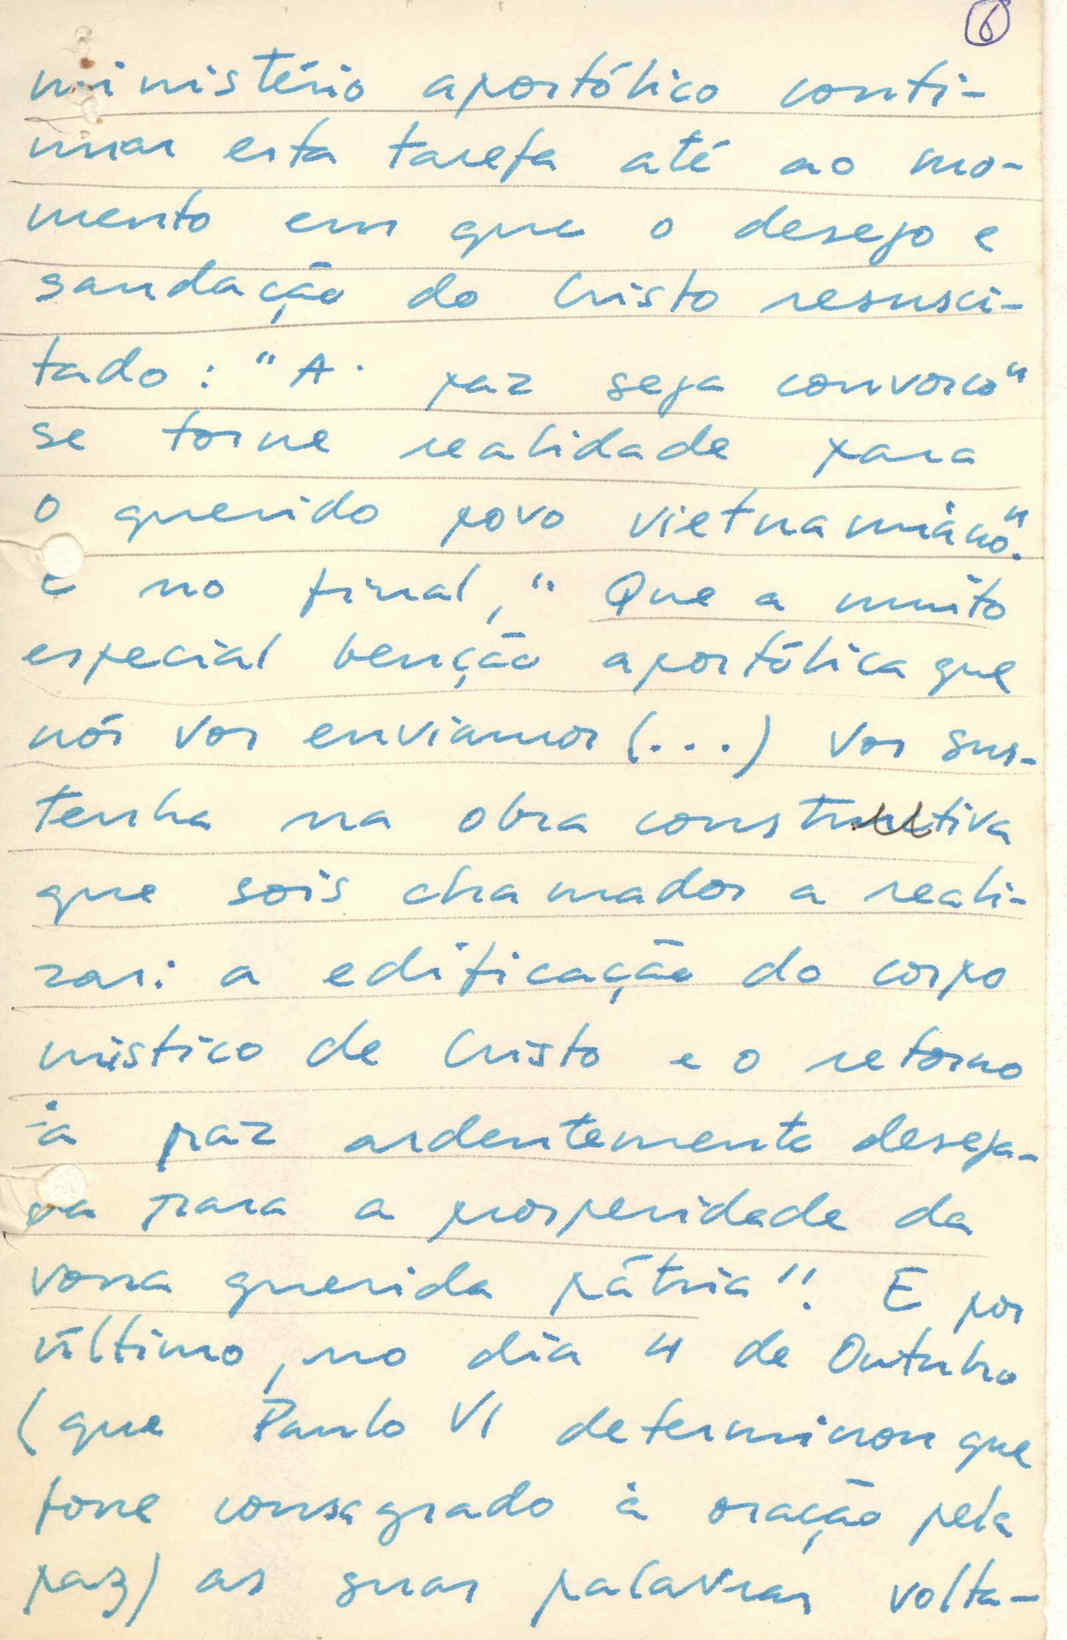 6
ministério apostólico conti-
nuar esta tarefa até ao mo-
mento em que o desejo e
saudação do Cristo resusci-
tado: "A paz seja convosco"
se torne realidade para
o querido povo vietnamiano".
E no final, "Que a muito
especial benção apostólica que
nós vos enviamos (...) vos sus-
tenha na obra construtiva
que sois chamados a reali-
zar: a edificação do corpo
mistico de Cristo e o retorno
à paz ardentemente deseja-
da para a prosperidade da
vossa querida pátria". E por
último, no dia 4 de Outubro
(que Paulo VI determinou que
fosse consagrado à oração pela
paz) as suas palavras volta-